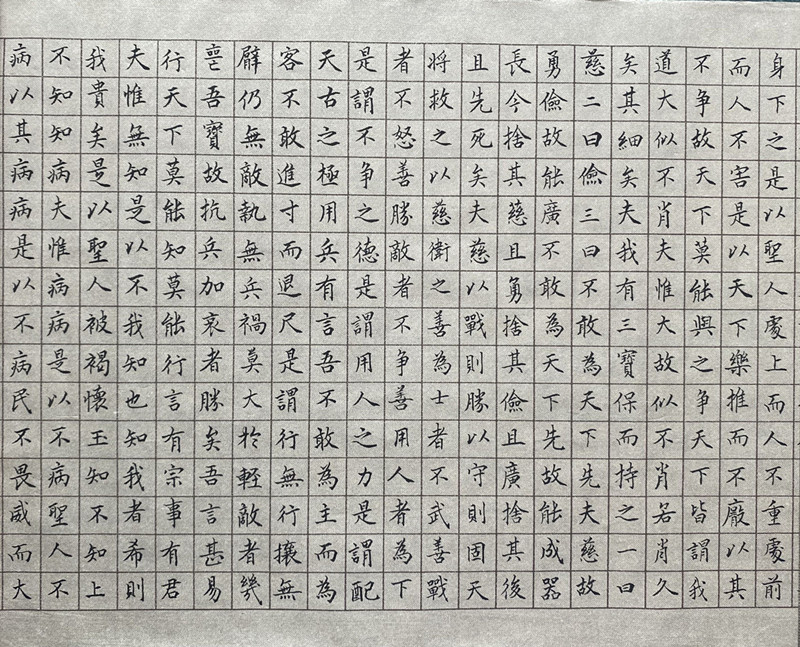 身下之是以聖人處上而人不重處前
而人不害是以天下樂推而不厭以其
不争故天下莫能與之争天下皆謂我
道大似不肖夫惟大故似不肖若肖久
矣其細矣夫我有三寶保而持之一曰
慈二曰儉三曰不敢為天下先夫慈故
勇儉故能廣不敢為天下先故能成器
長今捨其慈且勇捨其儉且廣捨其後
且先死矣夫慈以戰則勝以守則固天
將救之以慈衛之善為士者不武善戰
者不怒善勝敵者不争善用人者為下
是謂不争之德是謂用人之力是謂配
天古之極用兵有言吾不敢為主而為
客不敢進寸而退尺是謂行無行攘無
臂仍無敵執無兵禍莫大於軽敵者幾
喪吾寶故抗兵加哀者勝矣吾言甚易
行天下莫能知莫能行言有宗事有君
夫惟無知是以不我知也知我者希則
我貴矣是以聖人被褐懷玉知不知上
不知知病夫惟病病是以不病聖人不
病以其病病是以不病民不畏威而大